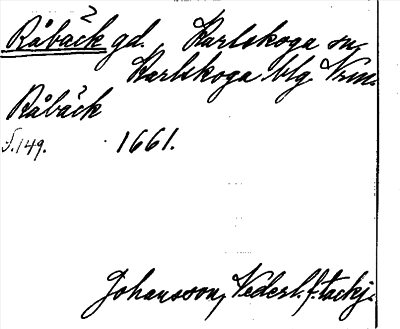 2
Råbäck gd. Karlskoga sn,
Karlskoga blg. Vrm.
Råbäck
S.149. 1661.
Johansson, Vederl. f. tackj.